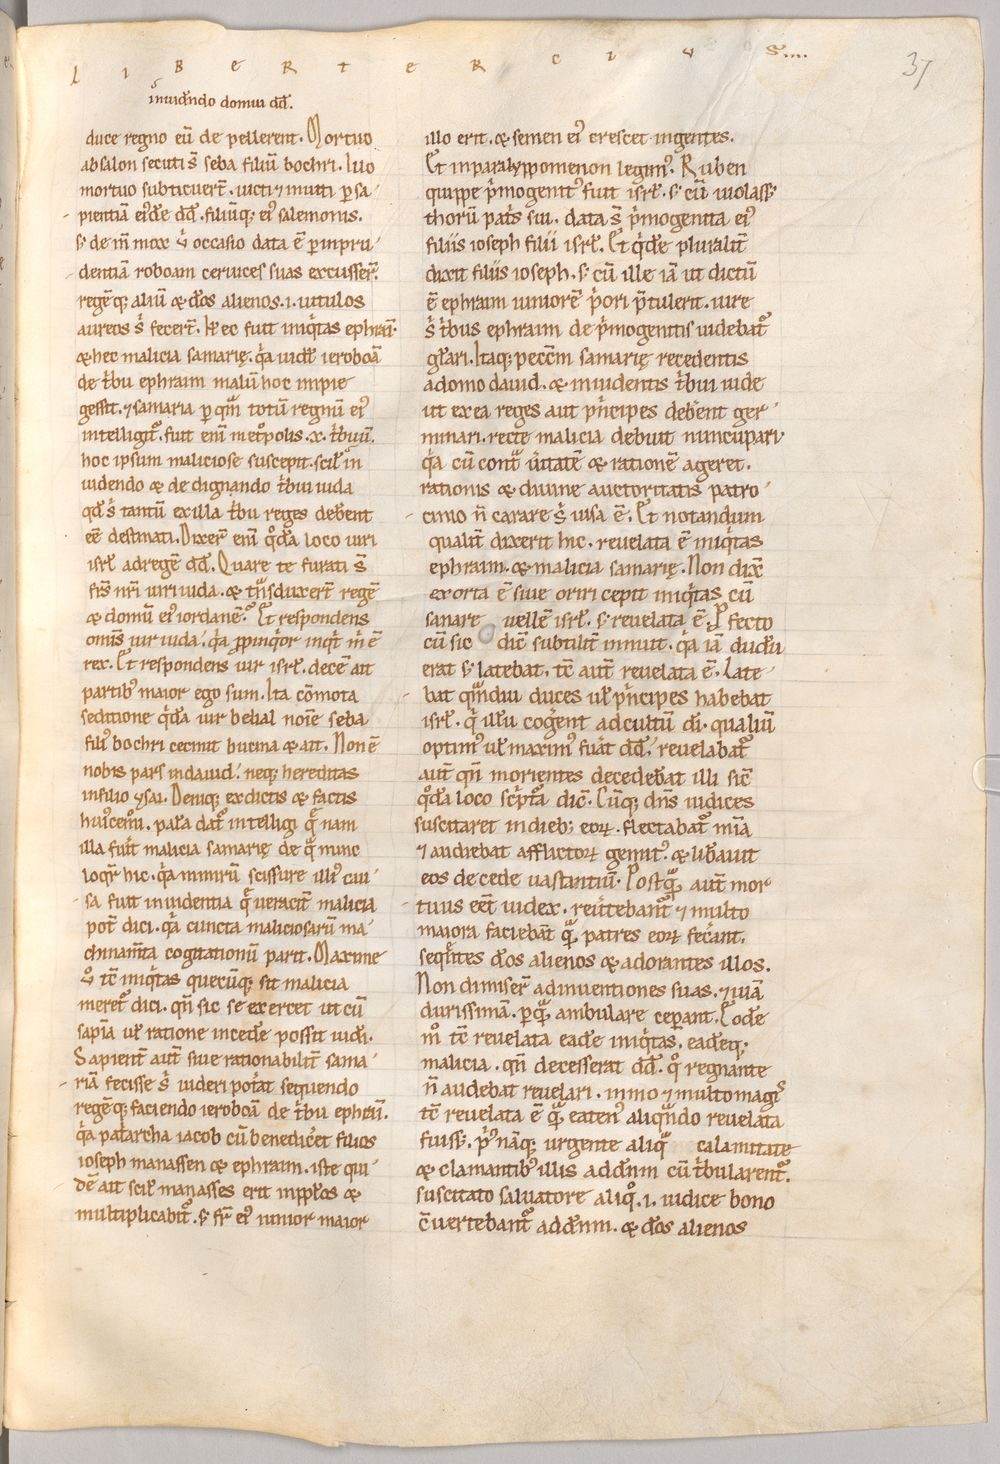 L I B E R T E R C I V S....
37
inuidendo domui dd̄.
duce regno eū de pellerent. Mortuo
absalon secuti s̄ seba filiū bochri. Quo
mortuo subticuerт̄. uicti ⁊ muti ꝑ sa
pientiā eiꝰdē dd̄. filiūq; eiꝰ salemonis.
sꝫ de m̄ mox ů occasio data ē ꝑ inpru
dentiā roboam ceruices suas excusser̄.
regēq; aliū & dōs alienos .i. uitulos
aureos s̓ fecer̄t. Hec fuit iniqͥtas ephraī.
& hec malicia samarię. qͥa uidel̄ ieroboā
de tͥbu ephraim malū hoc impie
gessit. ⁊ samaria ꝑ quā totū regnū eiꝰ
intelligit᷑. fuit eni᷒ met͛opolis .x. tͥbuū.
hoc ipsum maliciose suscepit. scil̄ in
uidendo & de dignando tͥbui iuda
qd̓ s̓ tantū ex illa tͥbu reges deb̄ent
eē destinati. Dixer̄ eni᷒ qͦdā loco uiri
isrl̄ ad regē dd̄. Quare te furati s̄
frs̄ nr̄i uiri iuda. & tͣnsduxer̄t regē
& domū eiꝰ iordanē? Et respondens
omīs uir iuda. qͥa ꝓpinqͥor inqͥt m̄ ē
rex. Et respondens uir isrl̄. decē ait
partibꝰ maior ego sum. Ita cōmota
seditione qͥdā uir belial noīe seba
filiꝰ bochri cecinit bucina & ait. Non ē
nobis pars in dauid. neq; hereditas
in filio ysai. Deniq; ex dictis & factis
huiꝰcem̄i. palā dat᷑ intelligi qͣ nam
illa fuit̄ malicia samarię de qͣ nunc
loqͥt᷑ hic. qͥa nimirū scissure illiꝰ cau
sa fuit inuidentia qͣ ueracit̄ malicia
pot̄ dici. qͥa cuncta maliciosarū ma
chinam̄ta cogitationū parit. Maxime
ů tc̄ iniqͥtas quecūq; sit malicia
meret᷑ dici. qn̄ sic se exercet ut cū
sapīa ul̄ ratione incedē possit uidi.
Sapient̄ aut̄ siue rationabilit̄ sama
riā fecisse s̓ uideri potat̄ sequendo
regēq; faciendo ieroboā de tͥbu ephraī.
qͥa patͥarcha iacob cū benedic̄et filios
ioseph manassen & ephraim. iste qui
dē ait scil̄ manasses erit in pp̄los &
multiplicabit᷑. sꝫ fr̄ eiꝰ iunior maior
illo erit. & semen eiꝰ crescet in gentes.
Et in paralyppomenon legimꝰ. Ruben
quippe pͥmogenitꝰ fuit isrl̄. sꝫ cū uiolass̄
thorū patͥs sui. data s̄ pͥmogenita eiꝰ
filiis ioseph filii isrl̄. Et qͥdē pluralit̄
dixit filiis ioseph. sꝫ cū ille iā ut dictū
ē ephraim iuniorē pͥori p̄tulerit. iure
s̓ tͥbus ephraim de pͥmogenitis uidebat᷑
gl̄ari. Itaq; pecc̄m samarię recedentis
a domo dauid. & inuidentis tͥbui iude
ut ex ea reges aut pͥncipes deb̄ent ger
minari. recte malicia debuit nuncupari
qͥa cū contͣ ůitatē & rationē ageret.
rationis & diuine auctoritatis patro
cinio n̄ carare s̓ uisa ē. Et notandum
qualit̄ dixerit hic. reuelata ē iniqͥtas
ephraim. & malicia samarię. Non dix̄
exorta ē siue oriri cepit iniqͥtas cū
sanare uellē isrl̄. sꝫ reuelata ē. Profecto
cū sic dic̄ subtilit̄ innuit. qͥa iā dudū
erat sꝫ latebat. tc̄ aut̄ reuelata ē. Late
bat qͣmdiu duces ul̄ pͥncipes habebat
isrl̄. qͥ illū coḡent ad cultū di. qualiū
optimꝰ ul̄ maximꝰ fuat̄ dd̄. reuelabat᷑
aut̄ qn̄ morientes decedeb̄at illi sic̄
qͦda loco scͥpt̄a dic̄. Cūq; dn̄s iudices
suscitaret in dieb; eoꝝ. flectabat᷑ mīa
⁊ audiebat afflictoꝝ gemitꝰ. & lib̄auit
eos de cede uastantiū. Postqͣ aut̄ mor
tuus eēt iudex. reůtebant᷑ ⁊ multo
maiora faciebāt qͣ patres eoꝝ fec̄ant.
seqͥntes dōs alienos & adorantes illos.
Non dimiser̄ adinuentiones suas. ⁊ uiā
durissimā. ꝑ qͣ ambulare cep̄ant. Eodē
m̊ tc̄ reuelata eadē iniqͥtas. eadēq;
malicia. qn̄ decesserat dd̄. qͦ regnante
n̄ audebat reuelari. immo ⁊ multo magis
tc̄ reuelata ē qͣ eatenꝰ aliqͣndo reuelata
fuiss̄. pͥꝰ nāq; urgente aliqͣ calamitate
& clamantibꝰ illis ad dn̄m cū tͥbularent᷑.
suscitato saluatore aliqͦ .i. iudice bono
c̄uertebant᷑ ad dn̄m. & dōs alienos